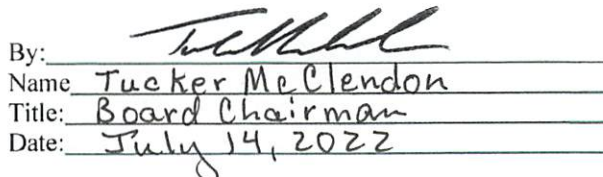 By:
Name Tucker McClendon
Title: Board Chairman
Date: July 14, 2022